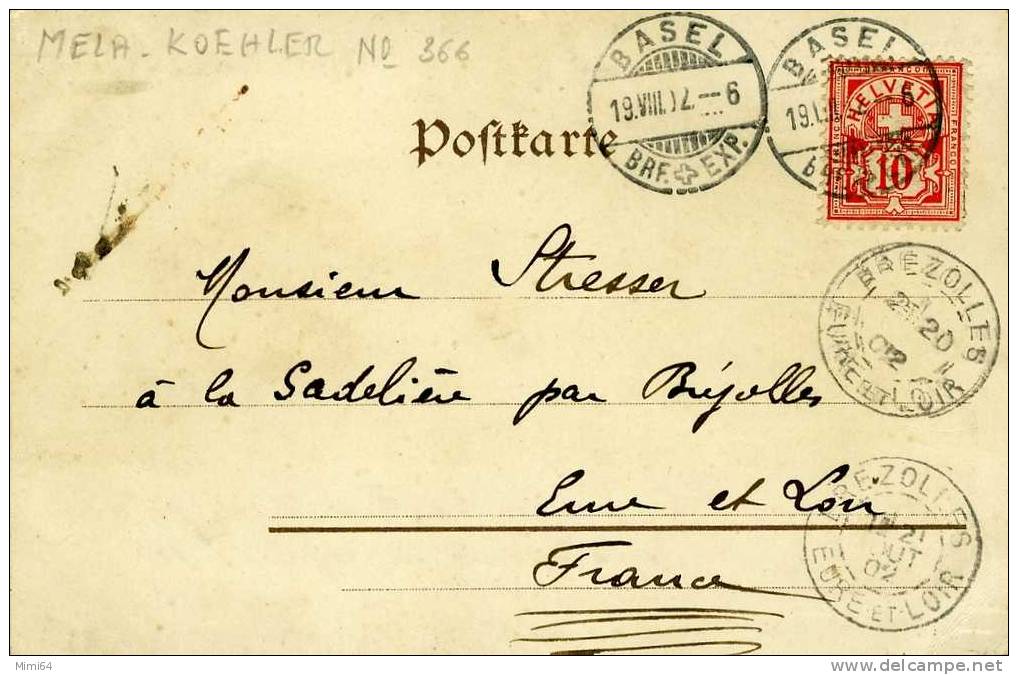 MELA - KOEHLER No 366
BASEL
19.VIII.02.–6
BRF. EXP.
BASEL
19.
6
HELVETIA
FRANCO
FRANCO
10
Postkarte
Monsieur Stresser
à la Sadelière par Brézolles
Eure et Loir
France
BREZOLLES
20
02
EURE-ET-LOIR
BREZOLLES
21
AOUT
02
EURE-ET-LOIR
Mimi64
delcampe.net